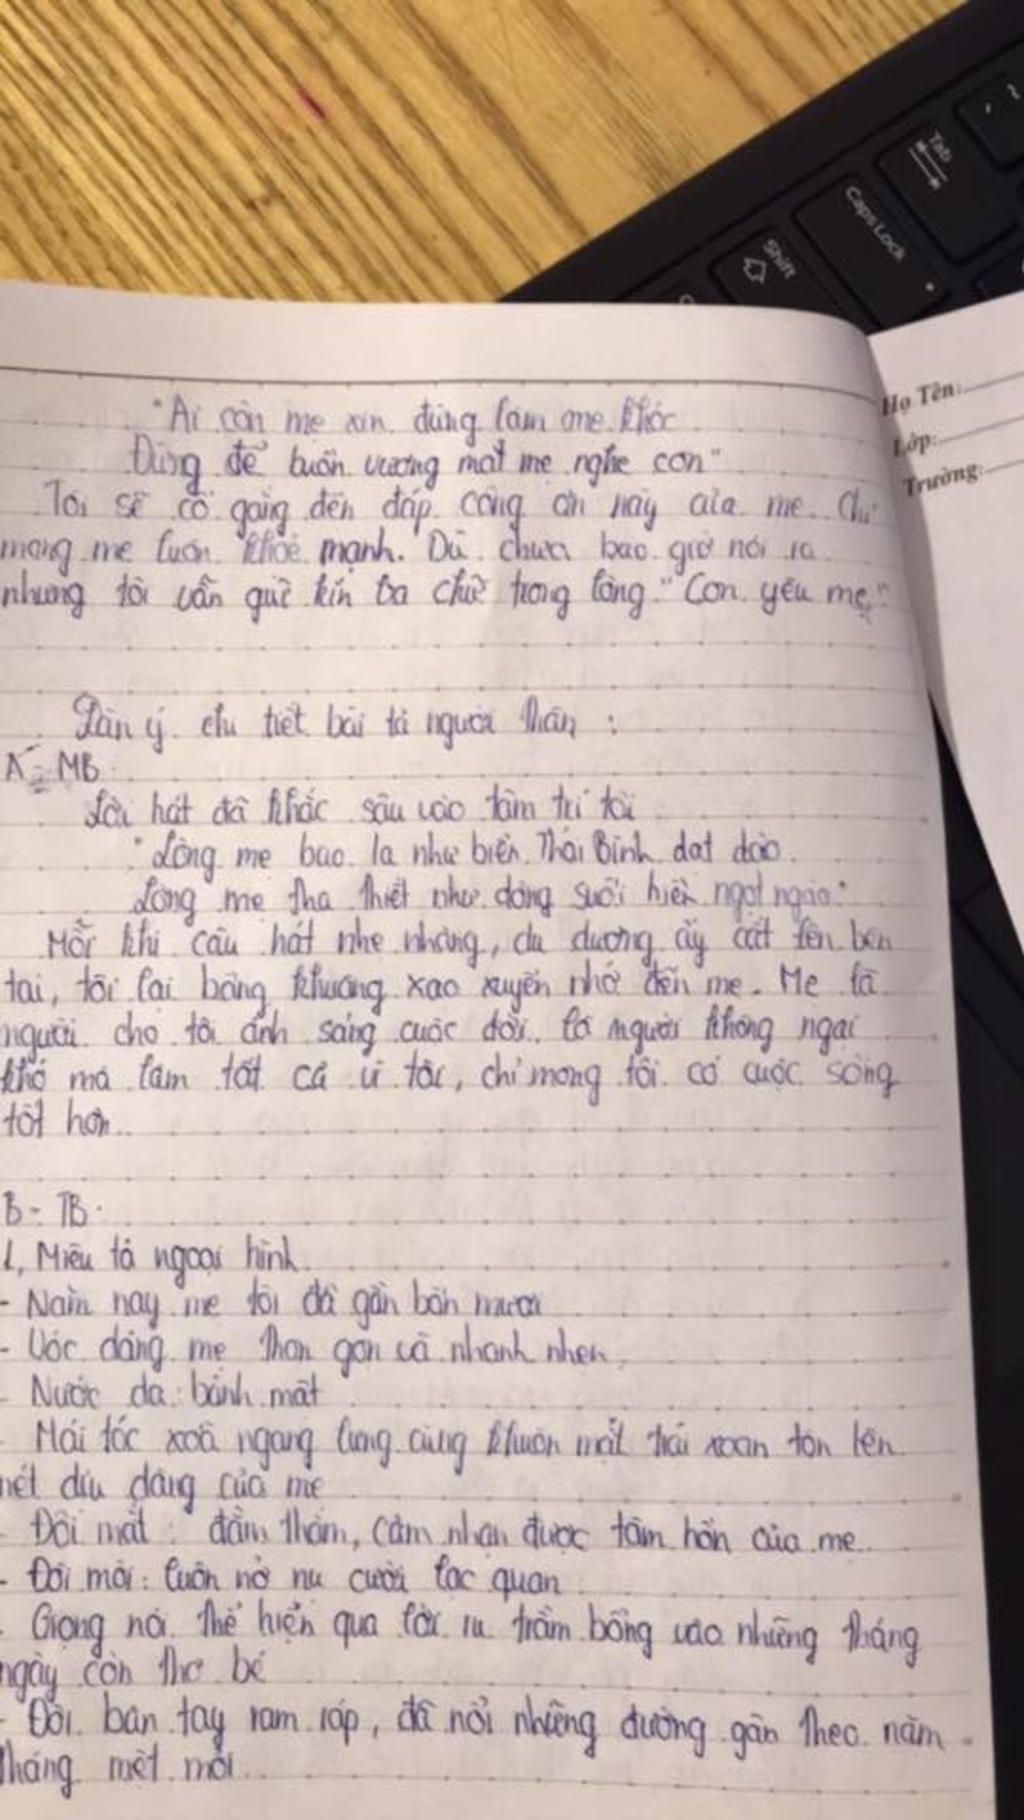 "Ai còn mẹ xin đừng làm mẹ khóc
Đừng để buồn vương mắt mẹ nghe con"
Tôi sẽ cố gắng đền đáp công ơn này của mẹ. Chỉ
mong mẹ luôn khoẻ mạnh. Dù chưa bao giờ nói ra
nhưng tôi vẫn giữ kín ba chữ trong lòng "Con yêu mẹ"
Dàn ý chi tiết bài tả người thân :
A - MB
Lời hát đã khắc sâu vào tâm trí tôi
"Lòng mẹ bao la như biển Thái Bình dạt dào
Lòng mẹ tha thiết như dòng suối hiền ngọt ngào"
Mỗi khi câu hát nhẹ nhàng, du dương ấy cất lên bên
tai, tôi lại bâng khuâng xao xuyến nhớ đến mẹ. Mẹ là
người cho tôi ánh sáng cuộc đời, là người không ngại
khó mà làm tất cả vì tôi, chỉ mong tôi có cuộc sống
tốt hơn.
B - TB.
1, Miêu tả ngoại hình
- Năm nay mẹ tôi đã gần bốn mươi
- Vóc dáng mẹ thon gọn và nhanh nhẹn
- Nước da: bánh mật
- Mái tóc xoã ngang lưng cùng khuôn mặt trái xoan tôn lên
nét dịu dàng của mẹ
- Đôi mắt : đằm thắm, cảm nhận được tâm hồn của mẹ
- Đôi môi: luôn nở nụ cười lạc quan
- Giọng nói thể hiện qua lời ru trầm bổng vào những tháng
ngày còn thơ bé
- Đôi bàn tay ram ráp, đã nổi những đường gân theo năm
tháng mệt mỏi
Họ Tên:
Lớp:
Trường:
~
Tab
Caps Lock
Shift